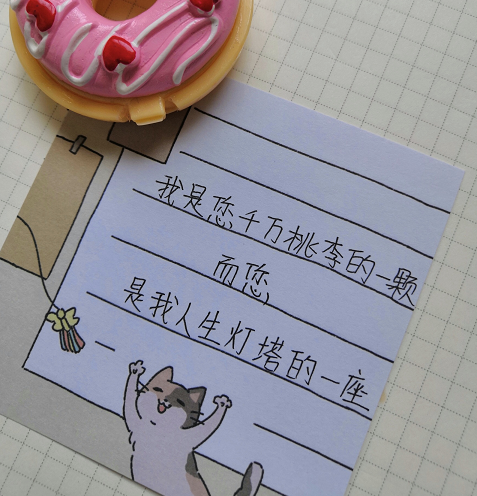 我是您千万桃李的一颗
而您
是我人生灯塔的一座